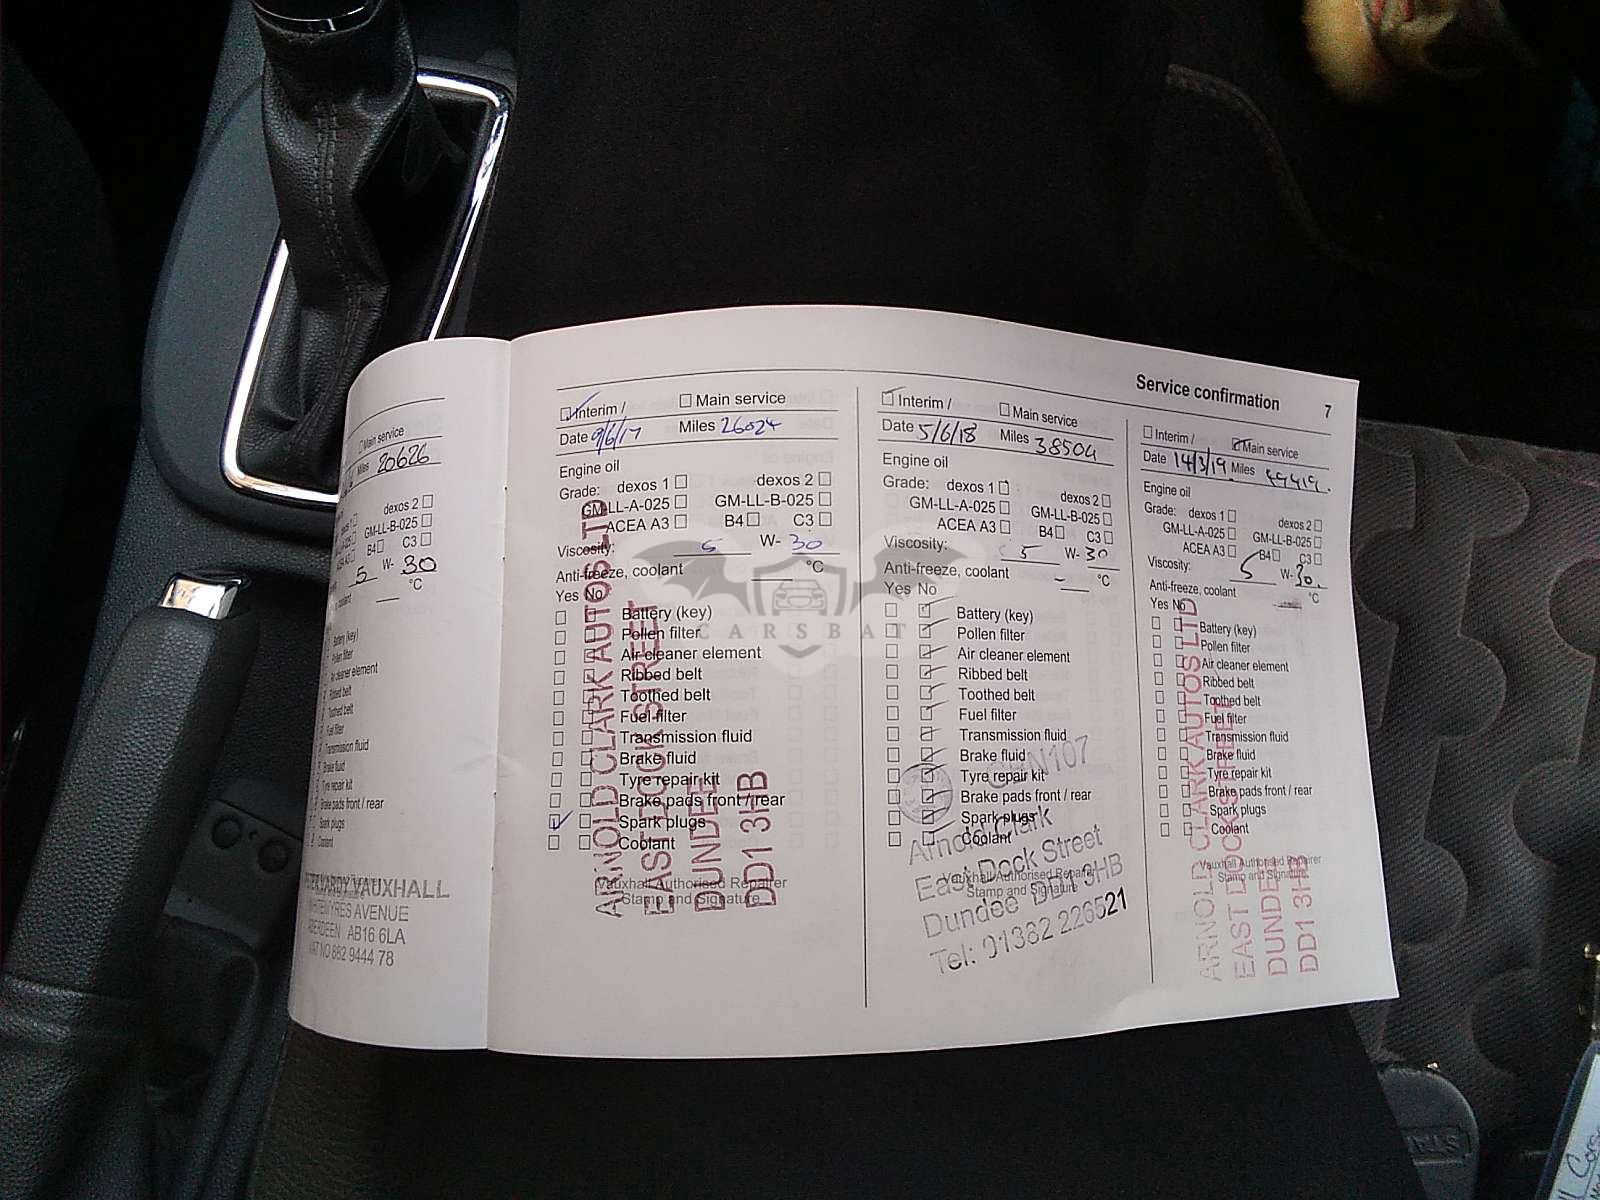 Service confirmation 7
Main service
Miles 20626
dexos 2
GM-LL-B-025
B4 C3
5 W- 30
°C
Battery (key)
Pollen filter
Air cleaner element
Ribbed belt
Toothed belt
Fuel filter
Transmission fluid
Brake fluid
Tyre repair kit
Brake pads front / rear
Spark plugs
Coolant
VARDY VAUXHALL
AVENUE
ABERDEEN AB16 6LA
VAT NO 882 9444 78
Interim / Main service
Date 9/6/17 Miles 26024
Engine oil
Grade: dexos 1 dexos 2
GM-LL-A-025 GM-LL-B-025
ACEA A3 B4 C3
Viscosity: 5 W- 30
Anti-freeze, coolant °C
Yes No
Battery (key)
Pollen filter
Air cleaner element
Ribbed belt
Toothed belt
Fuel filter
Transmission fluid
Brake fluid
Tyre repair kit
Brake pads front / rear
Spark plugs
Coolant
Vauxhall Authorised Repairer
Stamp and Signature
ARNOLD CLARK AUTOS LTD
EAST DOCK STREET
DUNDEE
DD1 3HB
Interim / Main service
Date 5/6/18 Miles 38504
Engine oil
Grade: dexos 1 dexos 2
GM-LL-A-025 GM-LL-B-025
ACEA A3 B4 C3
Viscosity: 5 W- 30
Anti-freeze, coolant °C
Yes No
Battery (key)
Pollen filter
Air cleaner element
Ribbed belt
Toothed belt
Fuel filter
Transmission fluid
Brake fluid
Tyre repair kit
Brake pads front / rear
Spark plugs
Coolant
Vauxhall Authorised Repairer
Stamp and Signature
Arnold Clark
East Dock Street
Dundee DD1 3HB
Tel: 01382 226521
Interim / Main service
Date 14/3/19 Miles 49419
Engine oil
Grade: dexos 1 dexos 2
GM-LL-A-025 GM-LL-B-025
ACEA A3 B4 C3
Viscosity: 5 W- 30
Anti-freeze, coolant °C
Yes No
Battery (key)
Pollen filter
Air cleaner element
Ribbed belt
Toothed belt
Fuel filter
Transmission fluid
Brake fluid
Tyre repair kit
Brake pads front / rear
Spark plugs
Coolant
Vauxhall Authorised Repairer
Stamp and Signature
ARNOLD CLARK AUTOS LTD
EAST DOCK STREET
DUNDEE
DD1 3HB
CARSBAT